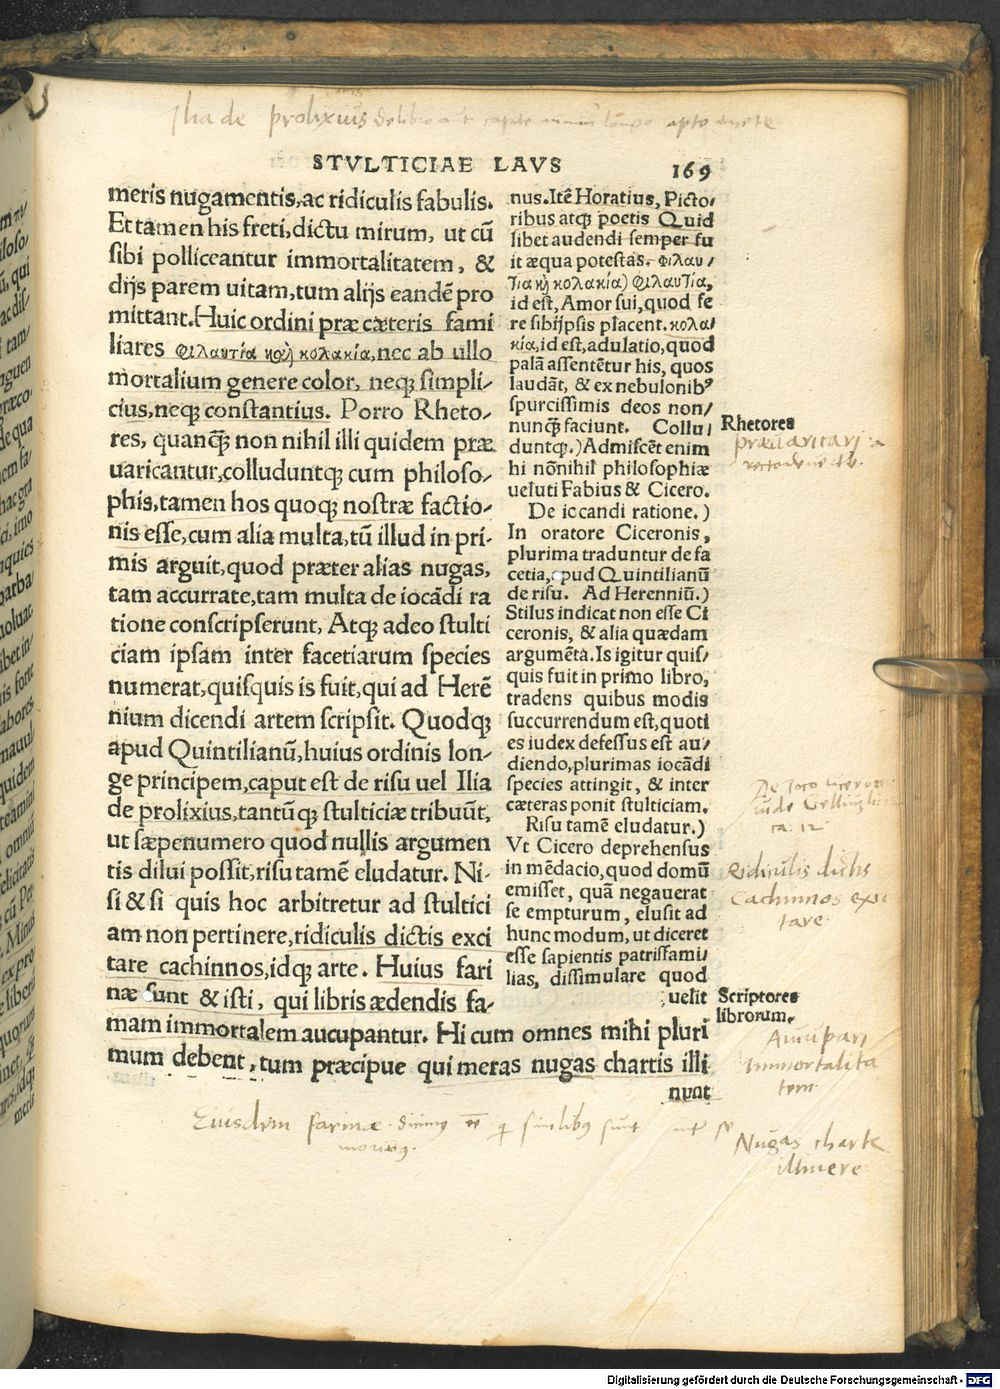 Iliade prolixius
STVLTICIAE LAVS 169
meris nugamentis, ac ridiculis fabulis.
Et tamen his freti, dictu mirum, ut cū
sibi polliceantur immortalitatem, &
dijs parem uitam, tum alijs eandē pro
mittant. Huic ordini præ cæteris fami
liares φιλαυτία καὶ κολακία, nec ab ullo
mortalium genere color, neqꝫ simpli-
cius, neqꝫ constantius. Porro Rheto-
res, quanqꝫ̄ non nihil illi quidem præ
uaricantur, colluduntqꝫ cum philoso-
phis, tamen hos quoqꝫ nostræ factio-
nis esse, cum alia multa, tū illud in pri-
mis arguit, quod præter alias nugas,
tam accurrate, tam multa de iocādi ra
tione conscripserunt, Atqꝫ adeo stulti
ciam ipsam inter facetiarum species
numerat, quisquis is fuit, qui ad Herē
nium dicendi artem scripsit. Quodqꝫ
apud Quintilianū, huius ordinis lon-
ge principem, caput est de risu uel Ilia
de prolixius, tantūqꝫ stulticiæ tribuūt,
ut sæpenumero quod nullis argumen
tis dilui possit, risu tamē eludatur. Ni-
si & si quis hoc arbitretur ad stultici
am non pertinere, ridiculis dictis exci
tare cachinnos, idqꝫ arte. Huius fari
næ sunt & isti, qui libris ædendis fa-
mam immortalem aucupantur. Hi cum omnes mihi pluri
mum debent, tum præcipue qui meras nugas chartis illi
nunt
nus. Itē Horatius, Picto/
ribus atqꝫ poetis Quid
libet audendi semper fu
it æqua potestas. Φιλαυ/
τία κὴ κολακία) Φιλαυτία,
id est, Amor sui, quod fe
re sibijpsis placent. κολα/
κία, id est, adulatio, quod
palā assentētur his, quos
laudāt, & ex nebulonibꝰ
spurcissimis deos non/
nunqꝫ̄ faciunt. Collu/
duntqꝫ.) Admiscēt enim
hi nōnihil philosophiæ
ueluti Fabius & Cicero.
De iocandi ratione.)
In oratore Ciceronis,
plurima traduntur de fa
cetia, apud Quintilianū
de risu. Ad Herenniū.)
Stilus indicat non esse Ci
ceronis, & alia quædam
argumēta. Is igitur quis/
quis fuit in primo libro,
tradens quibus modis
succurrendum est, quoti
es iudex defessus est au/
diendo, plurimas iocādi
species attingit, & inter
cæteras ponit stulticiam.
Risu tamē eludatur.)
Vt Cicero deprehensus
in mēdacio, quod domū
emisset, quā negauerat
se empturum, elusit ad
hunc modum, ut diceret
esse sapientis patrisfami/
lias, dissimulare quod
uelit
Rhetores
præuaricari
ca. 12
Ridiculis dictis
Cachinnos exci
tare
Scriptores
librorum.
Aucupari
immortalita
tem
Nugas charte
illinere
Eiusdem farinæ